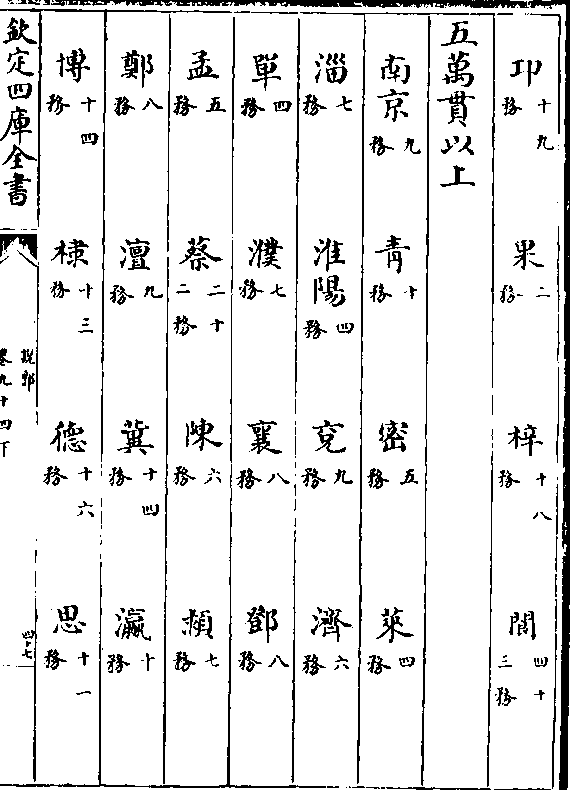 卭十九務　果二務　梓十八務　閬四十三務
五萬貫以上
南京九務　青十務　密五務　萊四務
淄七務　淮陽四務　兖九務　濟六務
單四務　濮七務　襄八務　鄧八務
孟五務　蔡二十二務　陳六務　頴七務
鄭八務　澶九務　冀十四務　瀛十務
博十四務　棣十三務　德十六務　思十一務
欽定四庫全書
說郛
卷九十四下
四十七